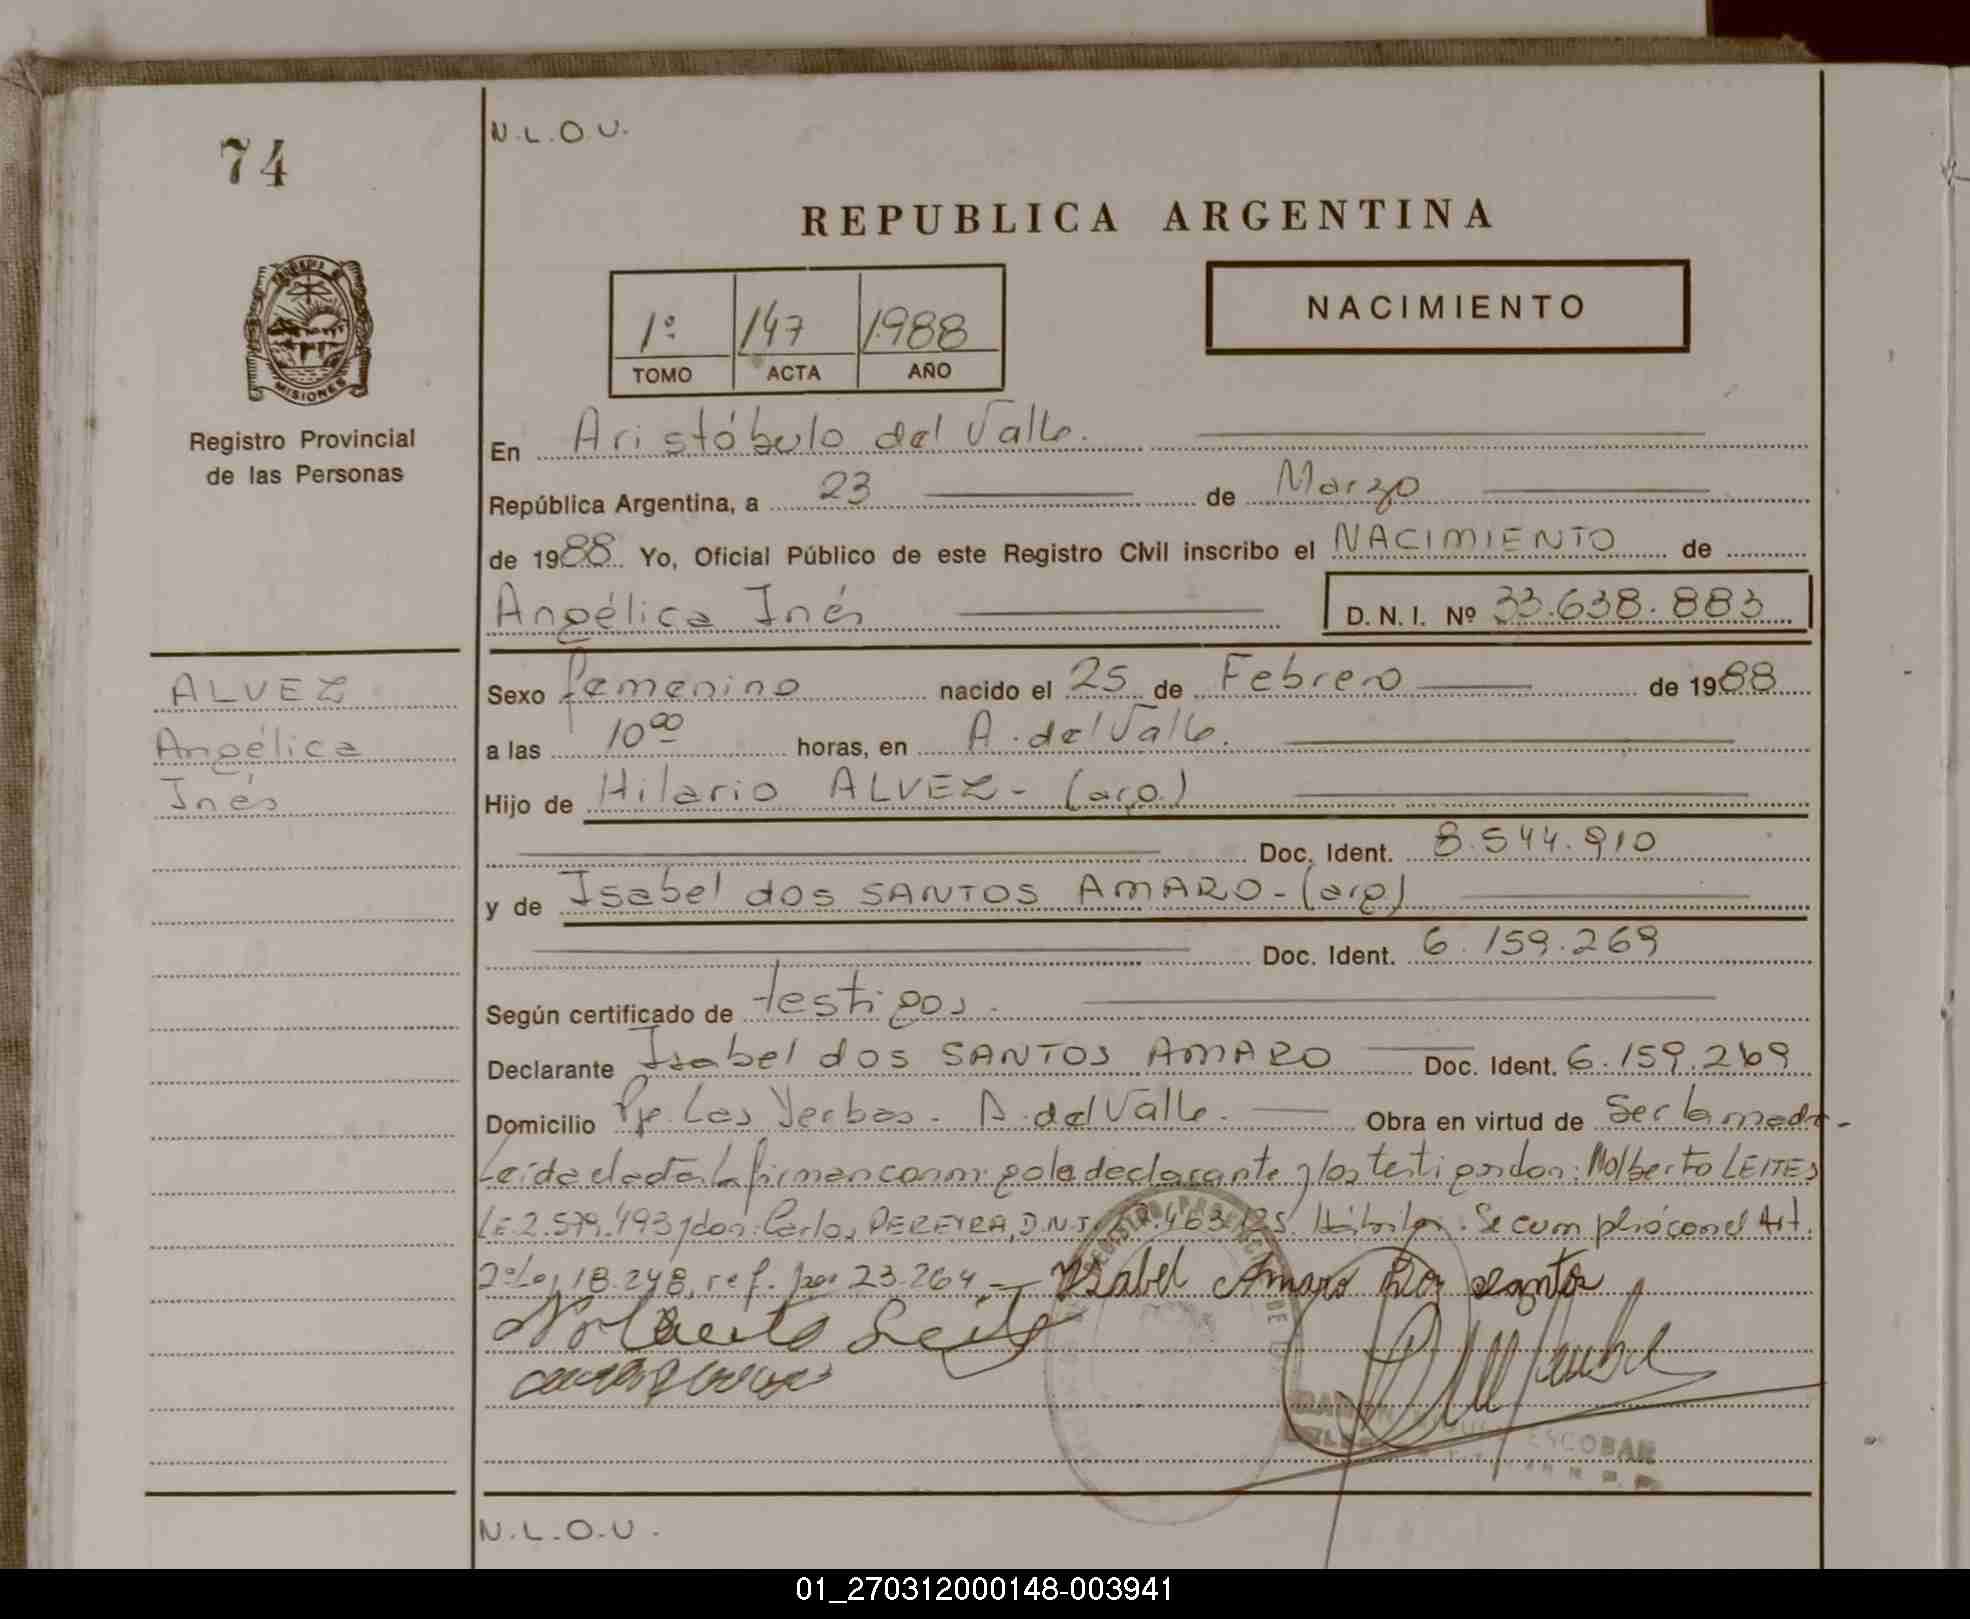 74
N.L.O.U.
REPUBLICA ARGENTINA
1º 147 1988
TOMO ACTA AÑO
NACIMIENTO
MISIONES
Registro Provincial
de las Personas
En Aristóbulo del Valle.
República Argentina, a 23 de Marzo
de 1988 Yo, Oficial Público de este Registro Civil inscribo el NACIMIENTO de
Angélica Inés D. N. I. Nº 33.638.883
ALVEZ
Angélica
Inés
Sexo femenino nacido el 25 de Febrero de 1988
a las 10 00 horas, en A. del Valle.
Hijo de Hilario ALVEZ - (arg.)
Doc. Ident. 8.544.910
y de Isabel dos SANTOS AMARO - (arg)
Doc. Ident. 6.159.269
Según certificado de testigos.
Declarante Isabel dos SANTOS AMARO Doc. Ident. 6.159.269
Domicilio Pje. Las Yerbas - A. del Valle. Obra en virtud de ser la madre
Leída el acta la firman conmigo la declarante y los testigos don: Nolberto LEITES
LE. 2.579.493 y don: Carlos PEREYRA, D.N.I. Se cumplió con el Art.
2º Ley 18.248, ref. por 23.264 - Ysabel Amaro Dos Santos
Nolberto Leite
ESCOBAR
N.L.O.U.
01_270312000148-003941